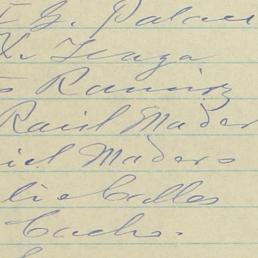 G. Palau
L. Teaga
Ramirz
Raul Mader
iel Madero
lio Calles
Cacho.